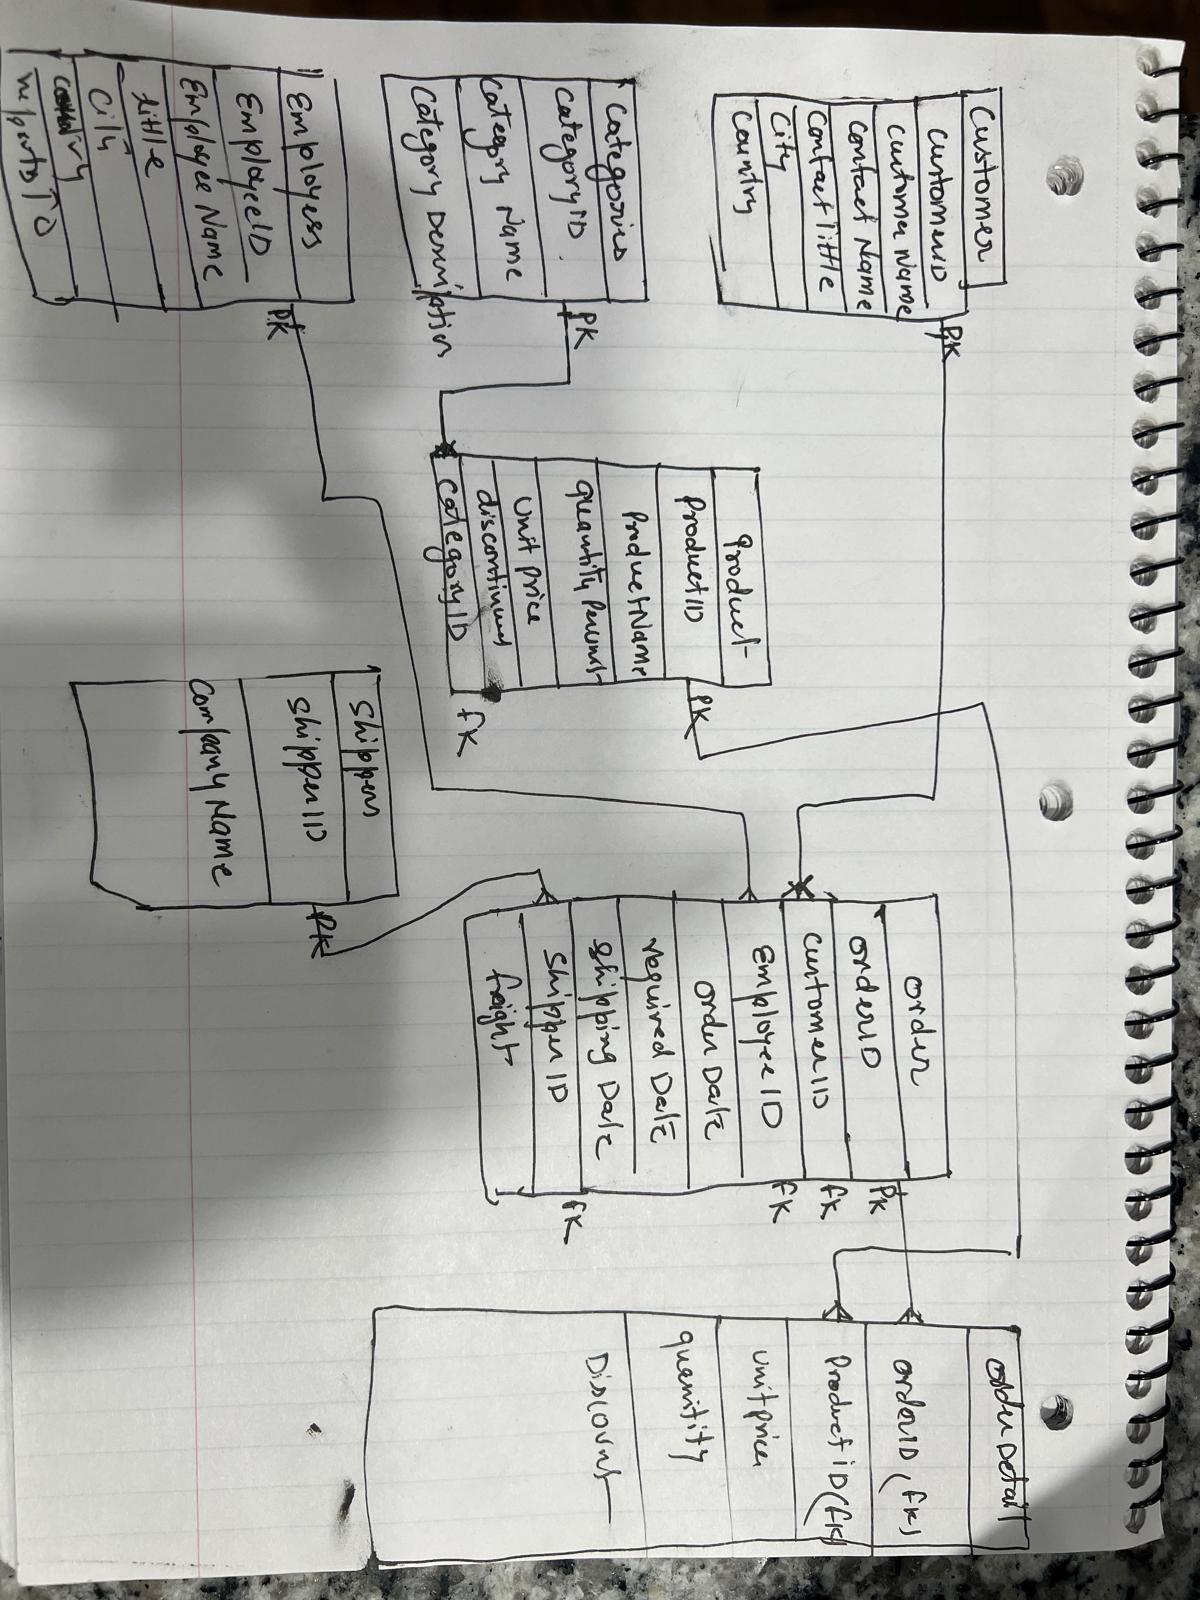 Customer
CustomerID
Customer Name
Contact Name
Contact tittle
City
Country
PK
Categories
CategoryID.
Category Name
Category Description
PK
Employess
EmployeeID
Employee Name
tittle
City
country
reportsTo
PK
Product
ProductID
ProductName
quantity Perunit
Unit price
discontinued
CategoryID
PK
FK
Shippers
ShipperID
Company Name
PK
order
orderID
CustomerID
Employee ID
order Date
required Date
shipping Date
Shipper ID
freight
PK
FK
FK
FK
order Detail
orderID (FK)
Product ID (FK)
unit price
quantity
Discount